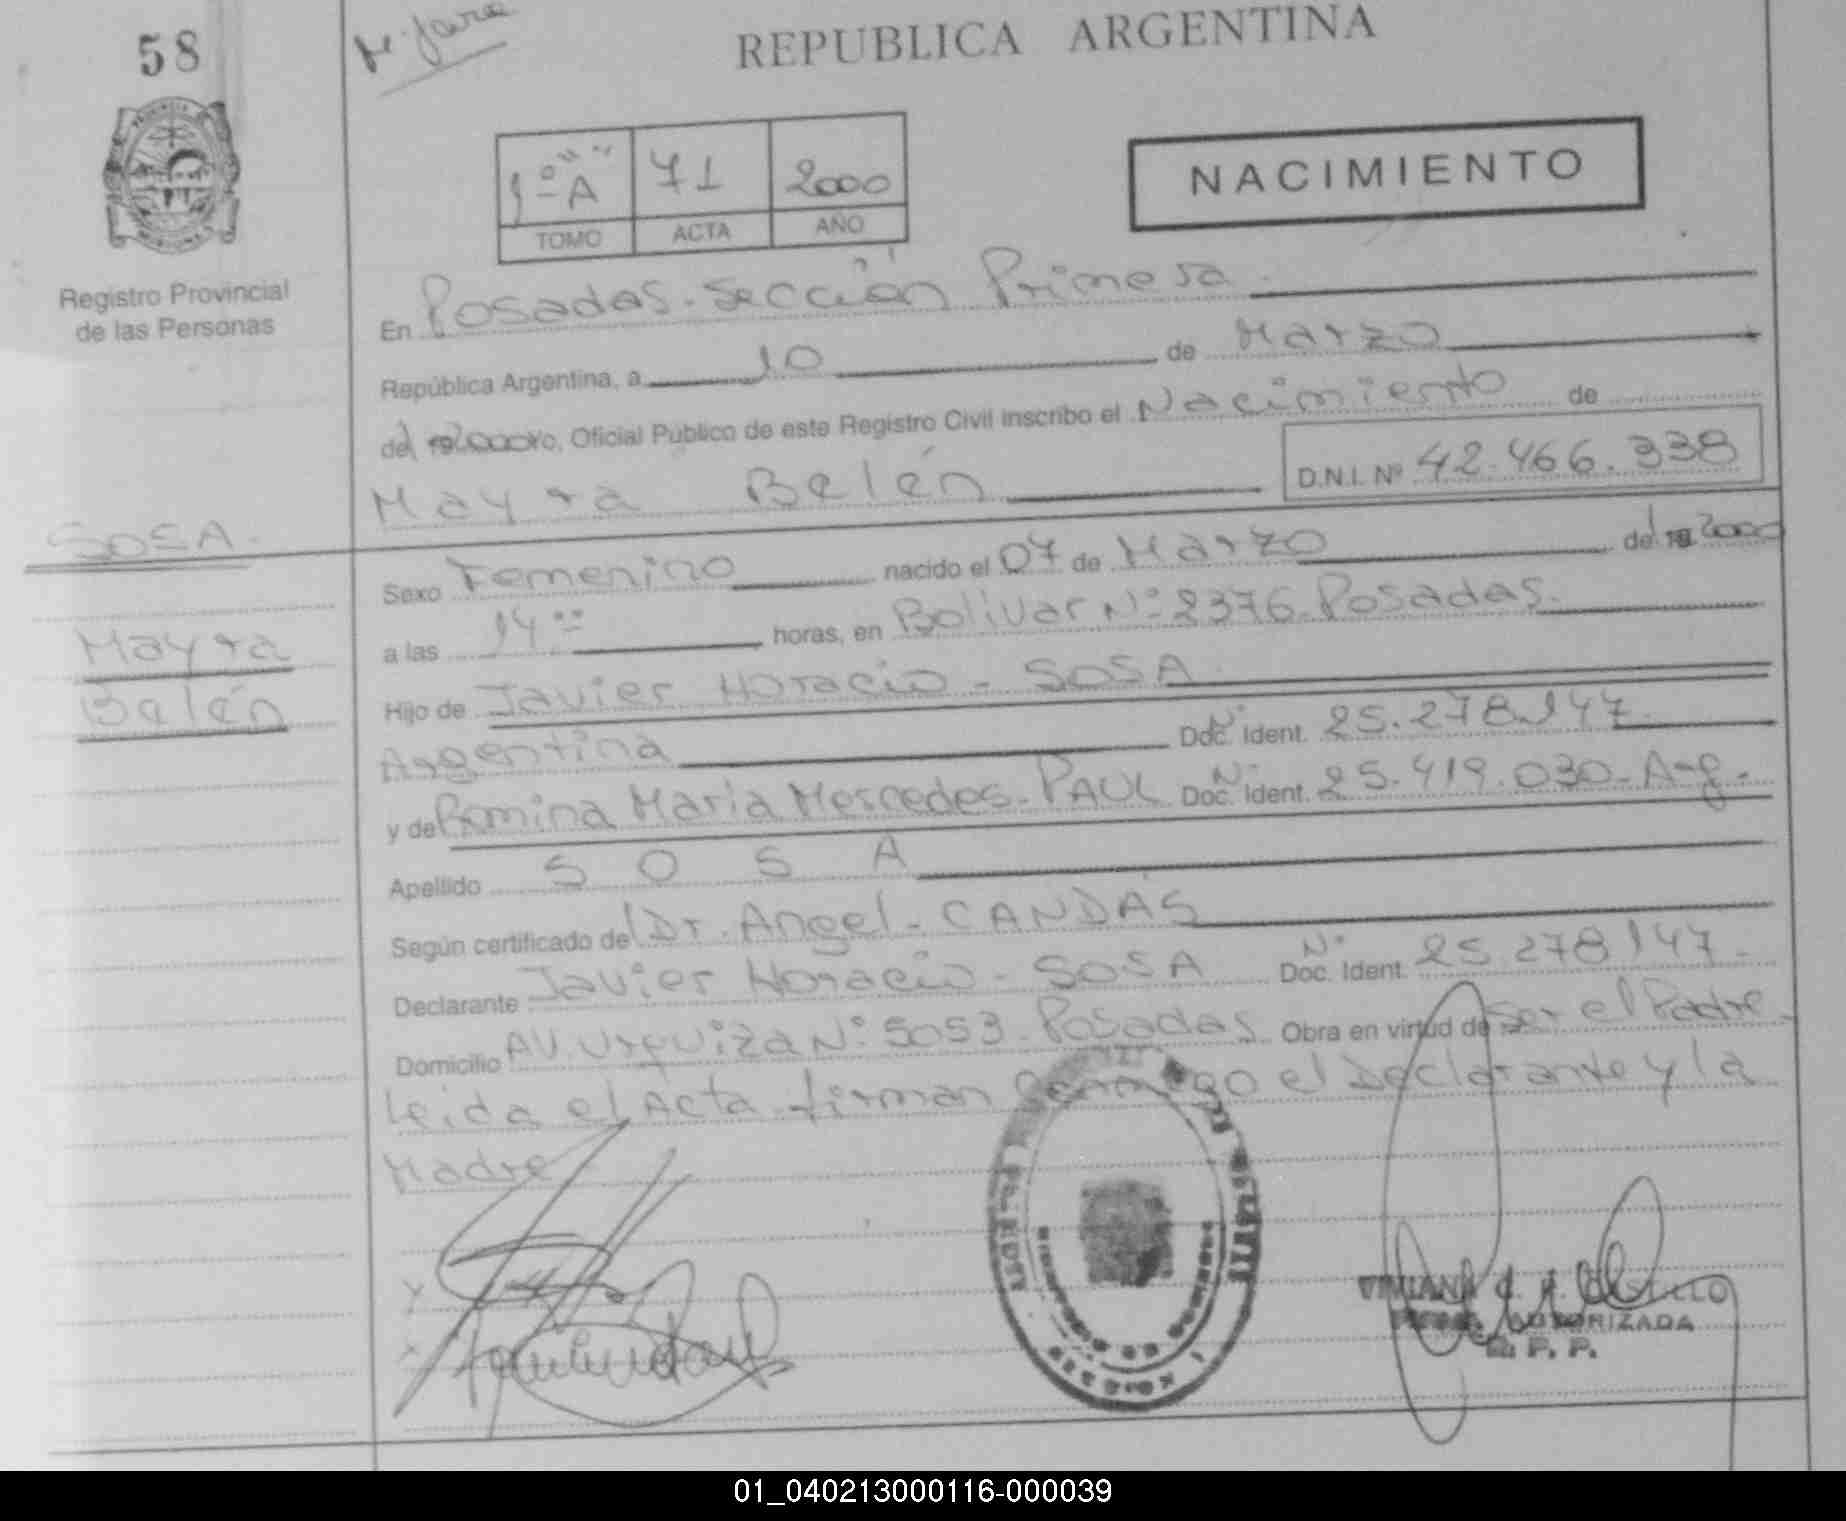 58
REPUBLICA ARGENTINA
1º A 71 2000
TOMO ACTA AÑO
NACIMIENTO
Registro Provincial
de las Personas
En Posadas. Sección Primera.
República Argentina, a 10 de Marzo
del 2000 yo, Oficial Público de este Registro Civil inscribo el Nacimiento de
D.N.I. Nº 42.466.338
Mayra Belén
SOSA.
Mayra
Belén
Sexo Femenino nacido el 07 de Marzo del 2000
a las 14 horas, en Bolivar Nº 2376. Posadas.
Hijo de Javier Horacio - SOSA.
Argentina Nº Doc. Ident. 25.278.147.
y de Romina Maria Mercedes. PAUL Nº Doc. Ident. 25.419.030 - Arg.
Apellido S O S A
Según certificado del Dr. Angel - CANDÁS
Declarante Javier Horacio - SOSA Nº Doc. Ident. 25.278.147.
Domicilio AV. Urquiza Nº 5053. Posadas Obra en virtud de Ser el Padre.
Leida el Acta firman conmigo el Declarante y la
Madre
VIVIANA
AUTORIZADA
R. P. P.
01_040213000116-000039